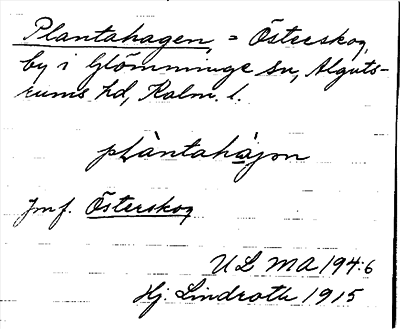 Plantahagen, = Österskog,
by i Glömminge sn, Alguts-
rums hd, Kalm. l.
pḷàntahàjon
Jmf. Österskog
ULMA 194:6
Hj. Lindroth 1915